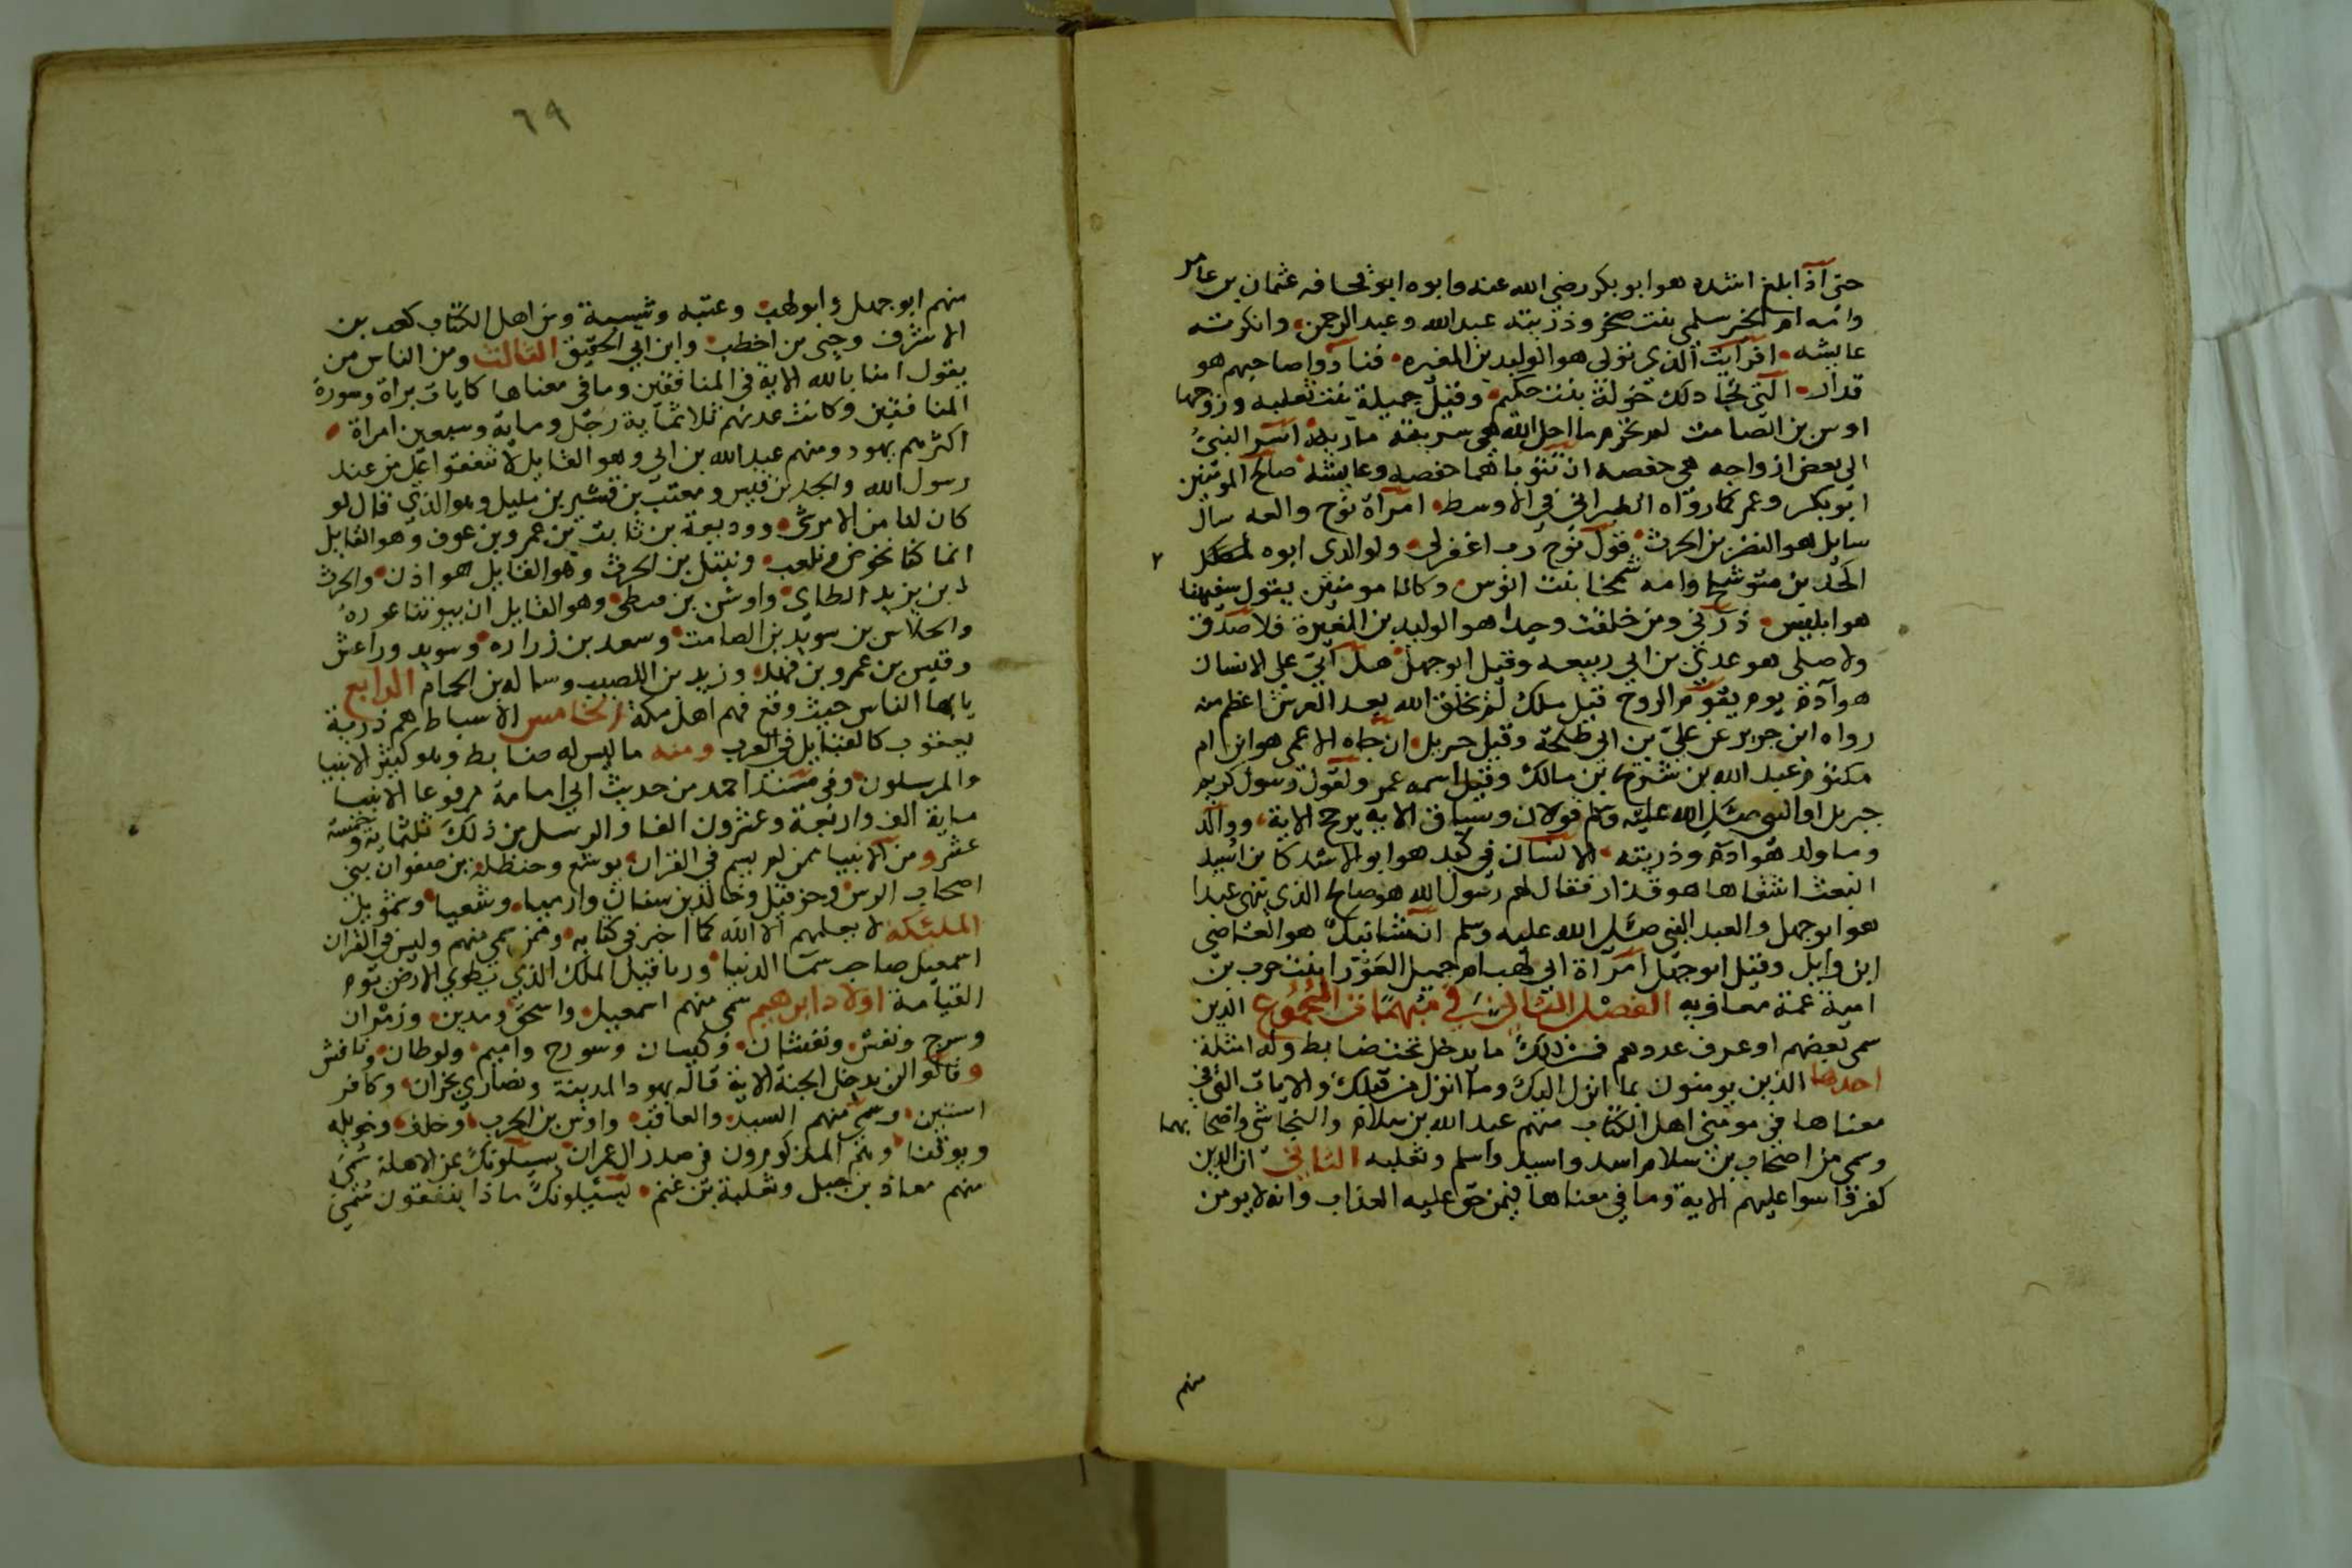 حتى اذا بلغ اشده هو ابو بكر رضي الله عنه وابوه ابو قحافه عثمان بن عامر
وامه ام الخير سلمى بنت صخر وذريته عبدالله وعبد الرحمن وانكرته
عايشه افرايت الذي تولى هو الوليد بن المغيره فنادوا صاحبهم هو
قدار التي تجادلك خولة بنت حكيم وقيل جميلة بنت ثعلبه وزوجها
اوس بن الصامت لم تحرم ما احل الله هي سريته مارية اسر النبي
الى بعض ازواجه هي حفصه ان تتوبا هما حفصه وعايشه صالح المومنين
ابو بكر وعمر كما رواه الطبراني في الاوسط امراة نوح والعه سال
سايل هو النضر بن الحرث قول نوح رب اغفرلي ولوالدي ابوه لمك
بن متوشلح وامه شمخا بنت انوس وكانا مومنين يقول سفيهنا
هو ابليس ذرني ومن خلقت وحيدا هو الوليد بن المغيرة فلا صدق
ولا صلى هو عدي بن ابي ربيعه وقيل ابو جهل هل اتى على الانسان
هو آدم يوم يقوم الروح قيل ملك لم يخلق الله بعد العرش اعظم منه
رواه ابن جرير عن علي بن ابي طلحة وقيل جبريل ان جاه الاعمى هو ابن ام
مكتوم عبد الله بن شريح بن مالك وقيل اسمه عمر ولقول رسول كريم
جبريل او النبي صلى الله عليه وسلم قولان وسياق الايه يرجح الاية ووالد
وما ولد هو ادم وذريته الانسان في كبد هو ابو الاشد كا بن اسيد
انبعث اشقاها هو قدار فقال لهم رسول الله هو صالح الذي ينهى عبدا
هو ابو جهل والعبد النبي صلى الله عليه وسلم ان شانيك هو العاصي
ابن وايل وقيل ابو جهل امراة ابي لهب ام جميل العورا بنت حرب بن
امية عمة معاويه الفصل الثاني في مبهمات الجموع الذين
سمى بعضهم او عرف عددهم فمن ذلك ما يدخل تحت ضابط وله امثلة
احدها الذين يومنون بما انزل اليك وما انزل من قبلك والايات التي في
معناها في مومني اهل الكتاب منهم عبد الله بن سلام والنجاشي واصحابهما
وسمي من اصحاب بن سلام اسد واسيد واسلم وثعلبه الثاني ان الذين
كفروا سوا عليهم الاية وما في معناها فيمن حق عليه العذاب وانه لا يومن
منهم
٦٩
منهم ابو جهل وابو لهب وعتبه وشيبة ومن اهل الكتاب كعب بن
الاشرف وحيى بن اخطب وابن ابي الحقيق الثالث ومن الناس من
يقول امنا بالله الاية في المنافقين وما في معناها كايات براة وسورة
المنافقين وكانت عدتهم ثلاثماية رجل وماية وسبعين امراة
اكثرهم يهود ومنهم عبد الله بن ابي وهو القايل لا تنفقوا على من عند
رسول الله والجد بن قيس ومعتب بن قشير بن مليل وهو الذي قال لو
كان لنا من الامر شي ووديعة بن ثابت بن عمرو بن عوف وهو القايل
انما كنا نخوض ونلعب ونبتل بن الحرث وهو القايل هو اذن والحرث
بن يزيد الطاي واوس بن قيظي وهو القايل ان بيوتنا عورة
والجلاس بن سويد بن الصامت وسعد بن زراره وسويد وراعش
وقيس بن عمرو بن فهد وزيد بن اللصيب وسلاله بن الحمام الرابع
يايها الناس حيث وقع فهم اهل مكة الخامس الاسباط هم ذرية
يعقوب كالقبايل في العرب ومنه ما ليس له ضابط وهو كثير الانبيا
والمرسلون وفي مسند احمد من حديث ابي امامة مرفوعا الانبيا
ماية الف واربعة وعشرون الفا والرسل من ذلك ثلثماية وخمسة
عشر ومن الانبيا ممن لم يسم في القران يوشع وحنظلة بن صفوان بني
اصحاب الرس وحزقيل وخالد بن سنان وارميا وشعيا وشمويل
الملئكه لا يعلمهم الا الله كما اخبر في كتابه وممن سمي منهم وليس في القران
اسمعيل صاحب سما الدنيا وريا قيل الملك الذي يطوي الارض يوم
القيامة اولاد ابرهيم سمي منهم اسمعيل واسحق ومدين وزمران
وسرج ونفش ونفشان وكيسان وسورح واميم ولوطان ونافش
وقالوا لن يدخل الجنة الاية قاله يهود المدينة ونصارى نجران وكافر
اسنين وسمي منهم السيد والعاقب واوس بن الحرب وخلف وخويله
ويوقنا ومنهم المذكورون في صدر ال عمران يسيلونك عن الاهلة سمي
منهم معاذ بن جبل وثعلبة بن غنم يسيلونك ماذا ينفقون سمي